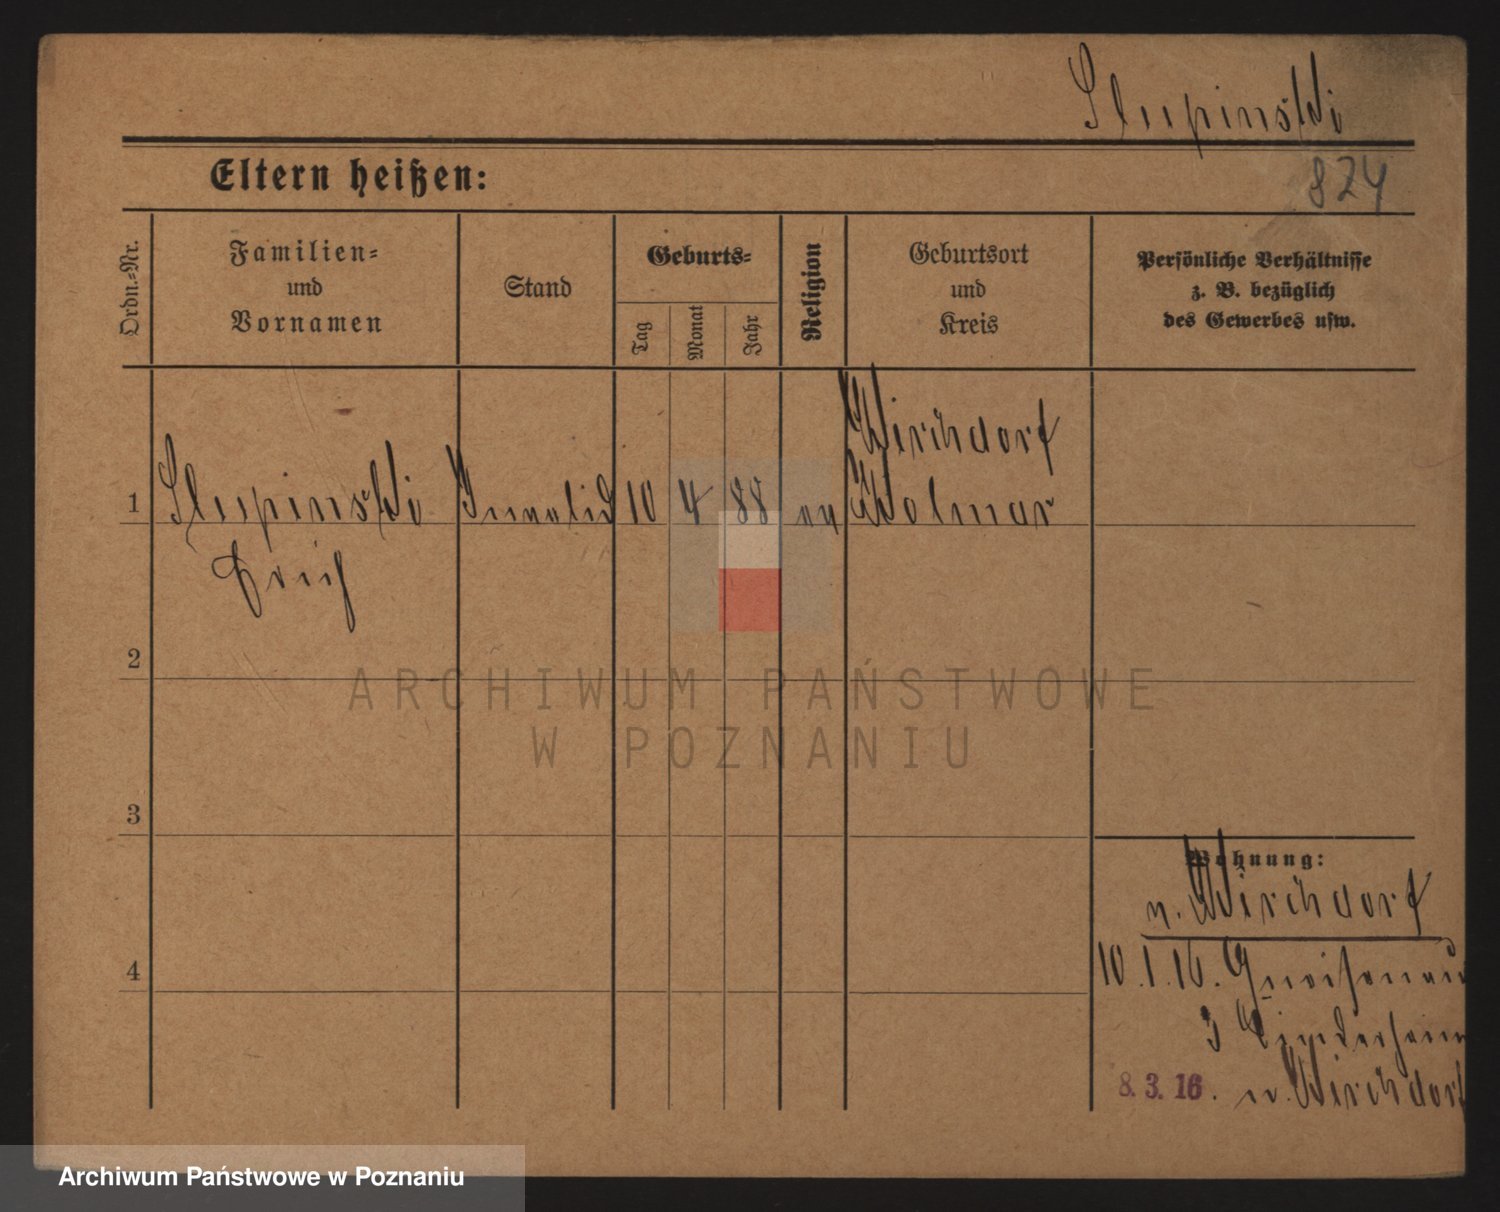 Slupinski
824
Eltern heißen:
Ordn.-Nr.
Familien-
und
Vornamen
Stand
Geburts-
Tag
Monat
Jahr
Religion
Geburtsort
und
Kreis
Persönliche Verhältnisse
z. B. bezüglich
des Gewerbes usw.
Wirchdorf
1 Slupinski Invalid 10 4 88 Kolmar
Erich
2
3
4
Wohnung:
n. Wirchdorf
10.1.16. Gneisenau
3 Kinderheim
8.3.16. n. Wirchdorf
ARCHIWUM PAŃSTWOWE
W POZNANIU
Archiwum Państwowe w Poznaniu